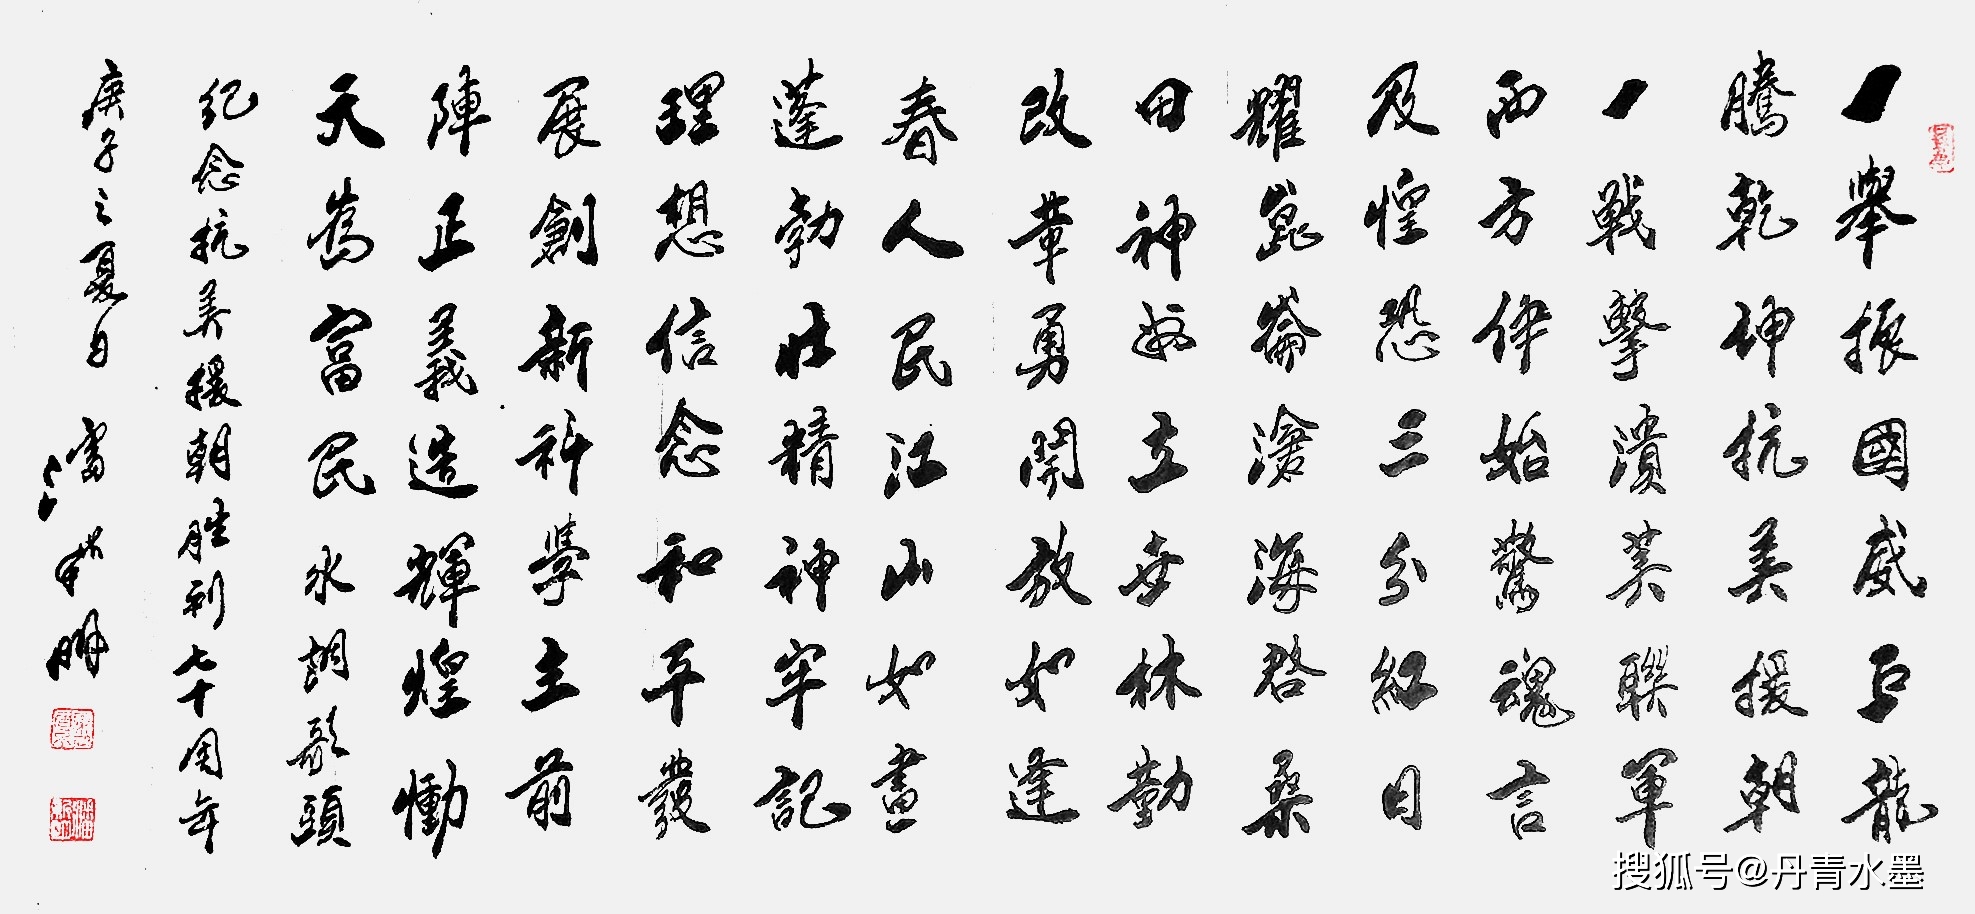 一舉振國威巨龍
騰乾坤抗美援朝
一戰擊潰美聯軍
西方伊始驚魂言
及惶恐三分紅日
耀崑崙滄海啓桑
田神立世林勤
改革勇開放如逢
春人民江山如畫
蓬勃壯精神牢記
理想信念和平發
展創新科學主前
陣正義造輝煌慟
天為富民永朗歌頭
纪念抗美援朝胜利七十周年
庚子之夏日
搜狐号@丹青水墨